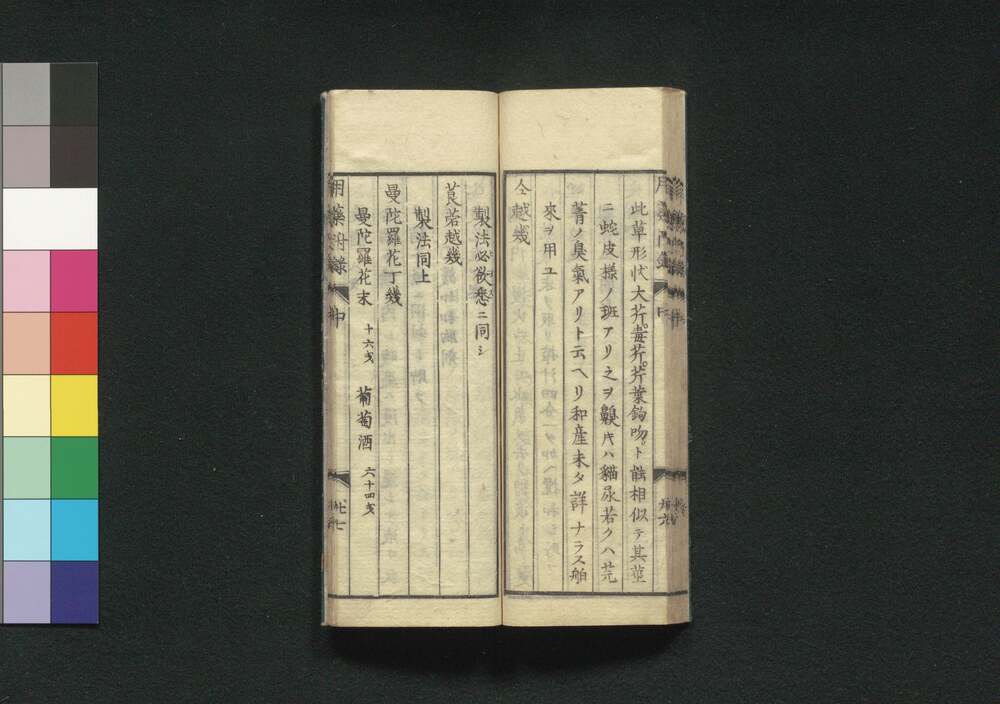 此草形状大芹毒芹芹葉鉤吻ト能相似テ其莖
ニ蛇皮様ノ斑アリ之ヲ齅キハ貓尿若クハ芫
菁ノ臭氣アリト云ヘリ和産未タ詳ナラス舶
來ヲ用ユ
仝越幾
製法必欲悉ニ同シ
莨菪越幾
製法同上
曼陀羅花丁幾
曼陀羅花末 十六戔 葡萄酒 六十四戔
用藥附録 中